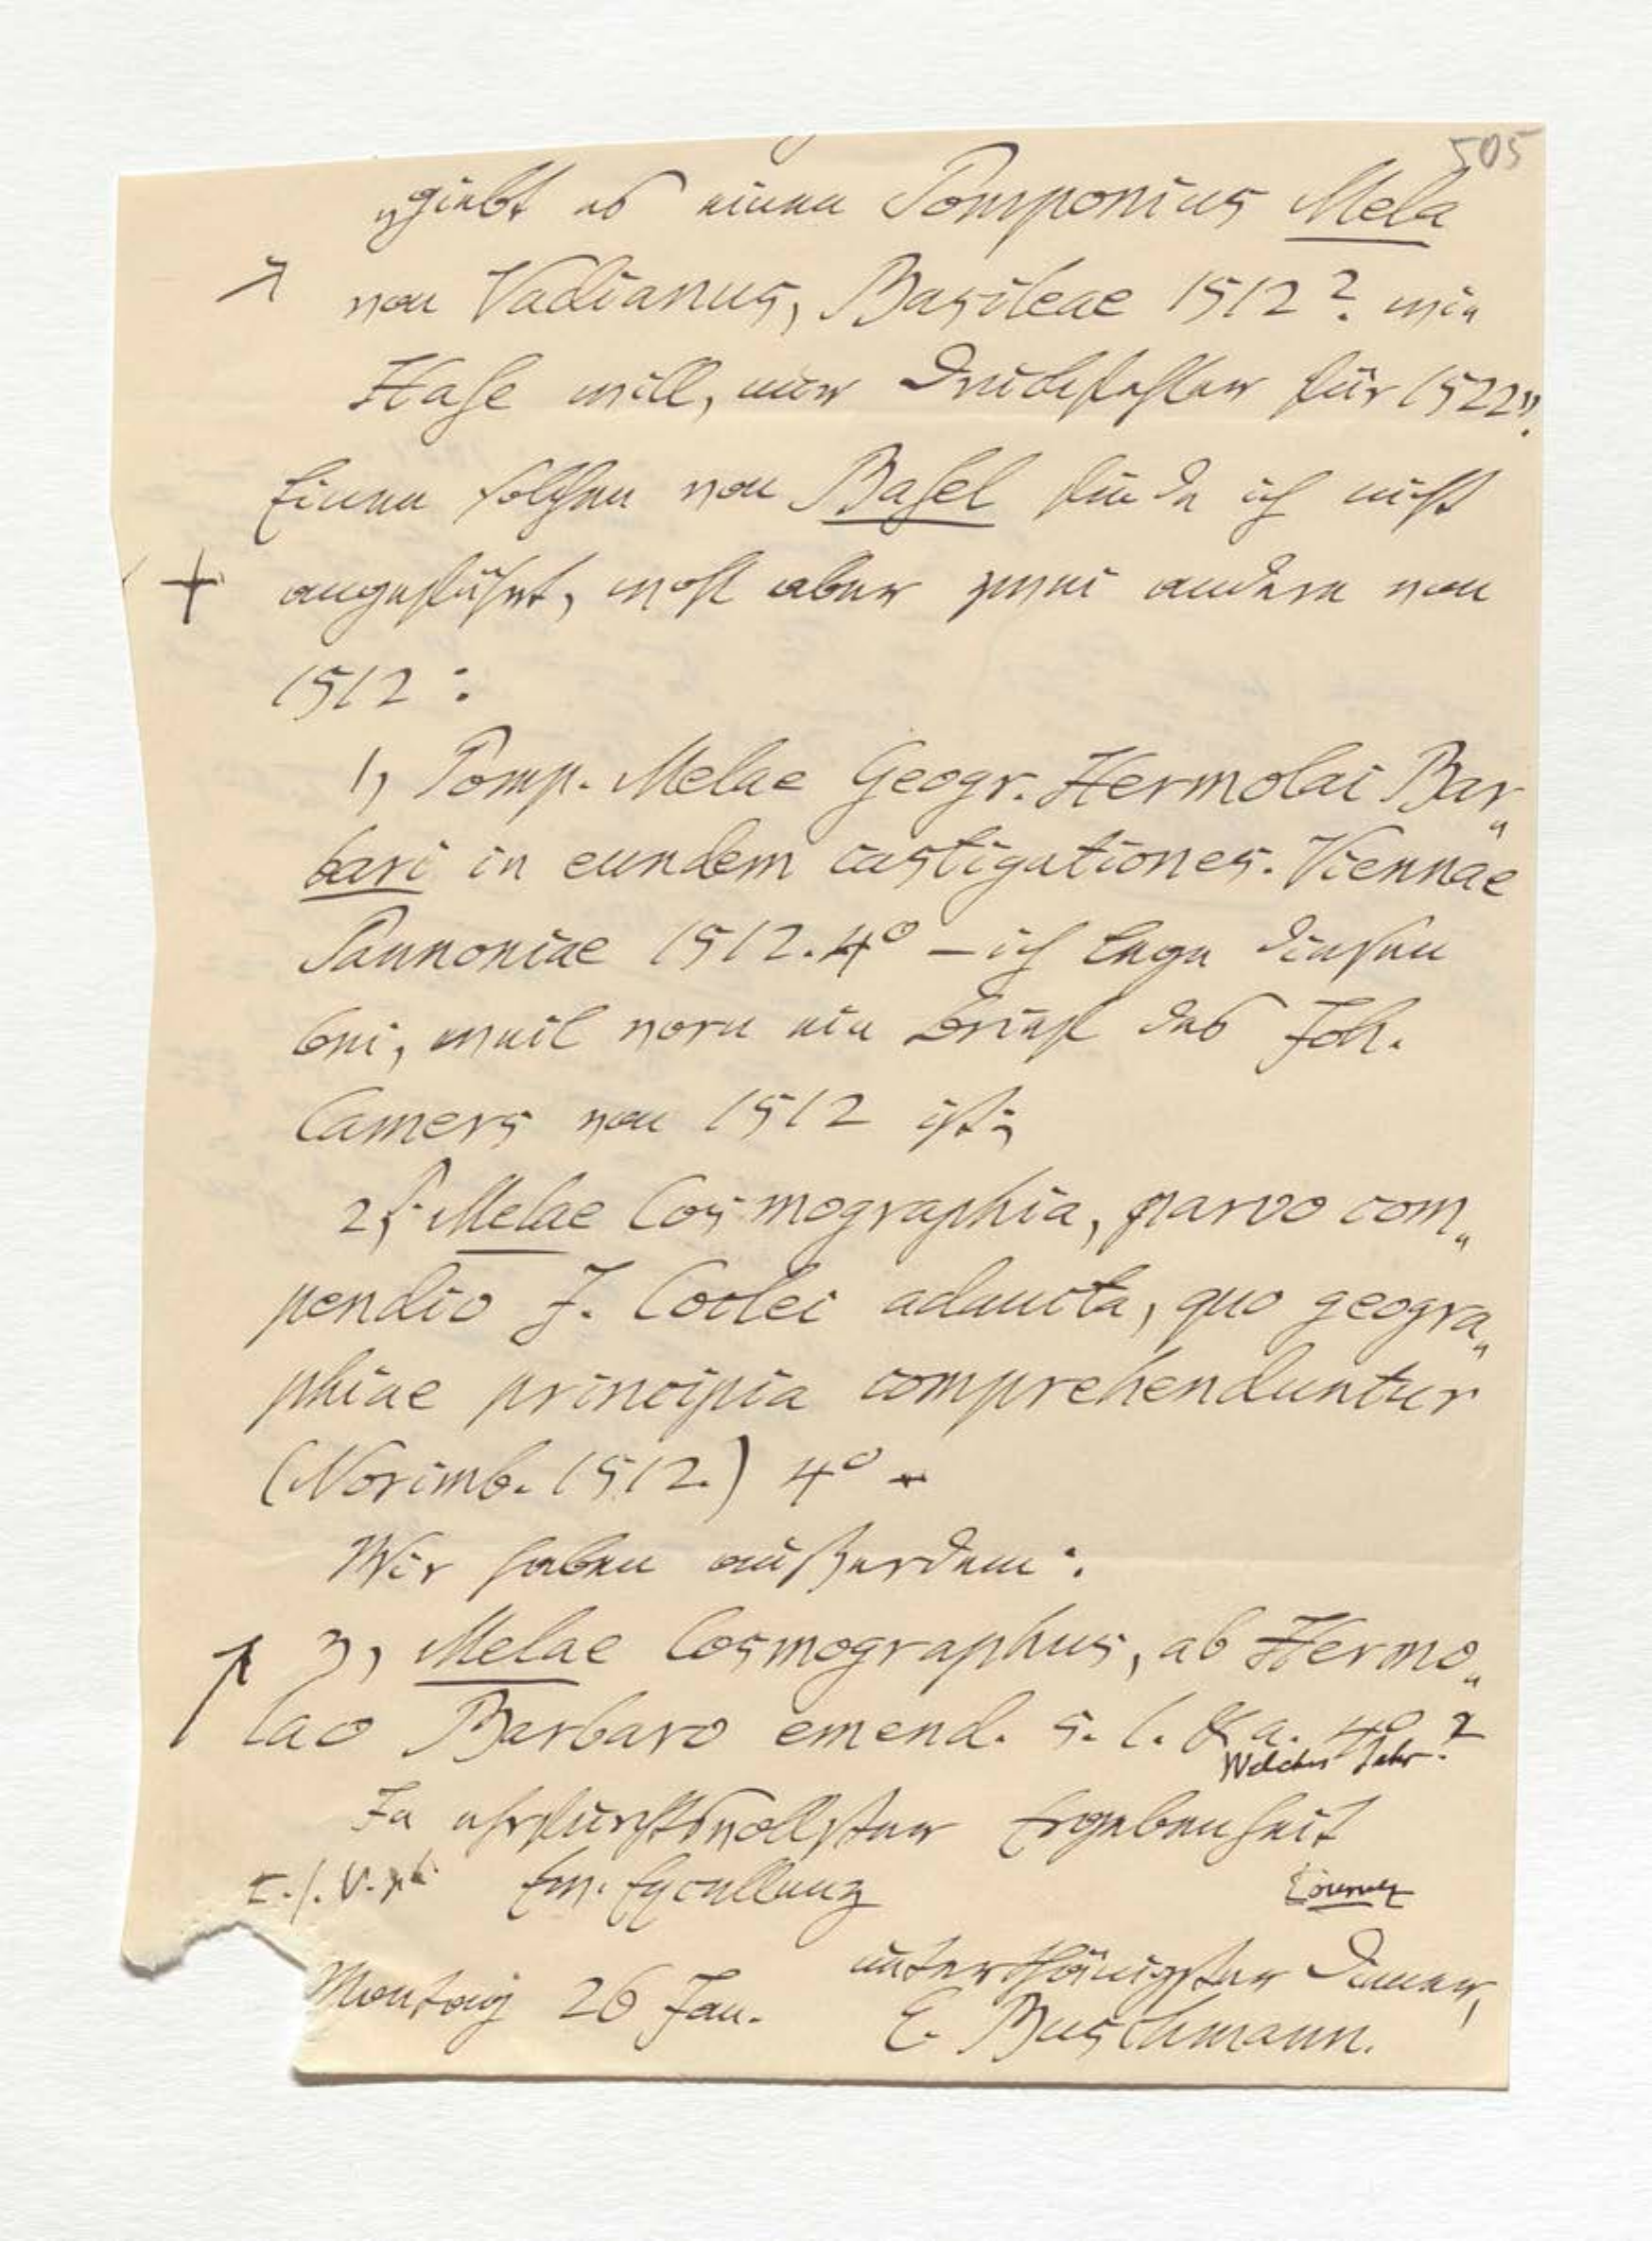 505
„giebt es einen Pomponius Mela
von Vadianus, Basileae 1512? wie
Hase will, nur Druckfehler für 1522".
Einen solchen von Basel finde ich nicht
+ angeführt, wohl aber zwei andere von
1512:
1, Pomp. Melae Geogr. Hermolai Bar„
bari in eundem castigationes. Viennae
Pannoniae 1512. 4° – ich lege diesen
bei, weil vorn ein Brief des Joh.
Camers von 1512 ist;
2, Melae Cosmographia, parvo com„
pendio J. Coclei adaucta, quo geogra„
phiae principia comprehenduntur
(Norimb. 1512.) 4° –
Wir haben außerdem:
3, Melae Cosmographus, ab Hermo„
lao Barbaro emend. s. l. & a. 4°
Welches Jahr?
In ehrfurchtsvollster Ergebenheit
Ew. Excellenz
unterthänigster Diener,
Montag 26 Jan.
E. Buschmann.